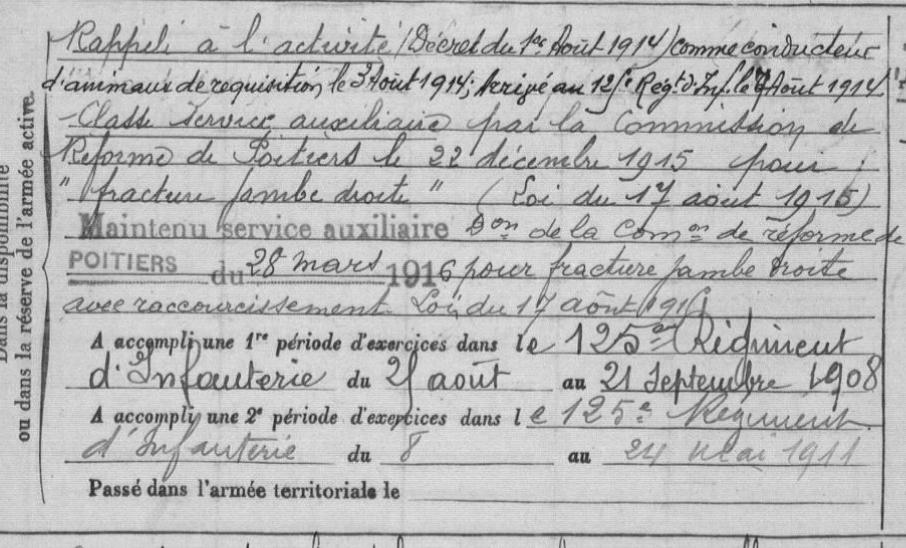 Dans la disponibilité
ou dans la réserve de l'armée active.
Rappelé à l'activité (Décret du 1er Août 1914) comme conducteur
d'animaux de requisition le 3 Août 1914; Arrivé au 125e Régt d'Inf. le Août 1914.
Classé service auxiliaire par la Commission de
Réforme de Poitiers le 22 décembre 1915 pour
"fracture jambe droite" (Loi du 17 août 1915)
Maintenu service auxiliaire Don de la Comon de réforme de
POITIERS du 28 mars 1916 pour fracture jambe droite
avec raccourcissement. Loi du 17 août 191
A accompli une 1re période d'exercices dans le 125me Régiment
d'Infanterie du août au 21 Septembre 1908
A accompli une 2e période d'exercices dans le 125e Régiment
d'Infanterie du 8 au 24 mai 1911
Passé dans l'armée territoriale le